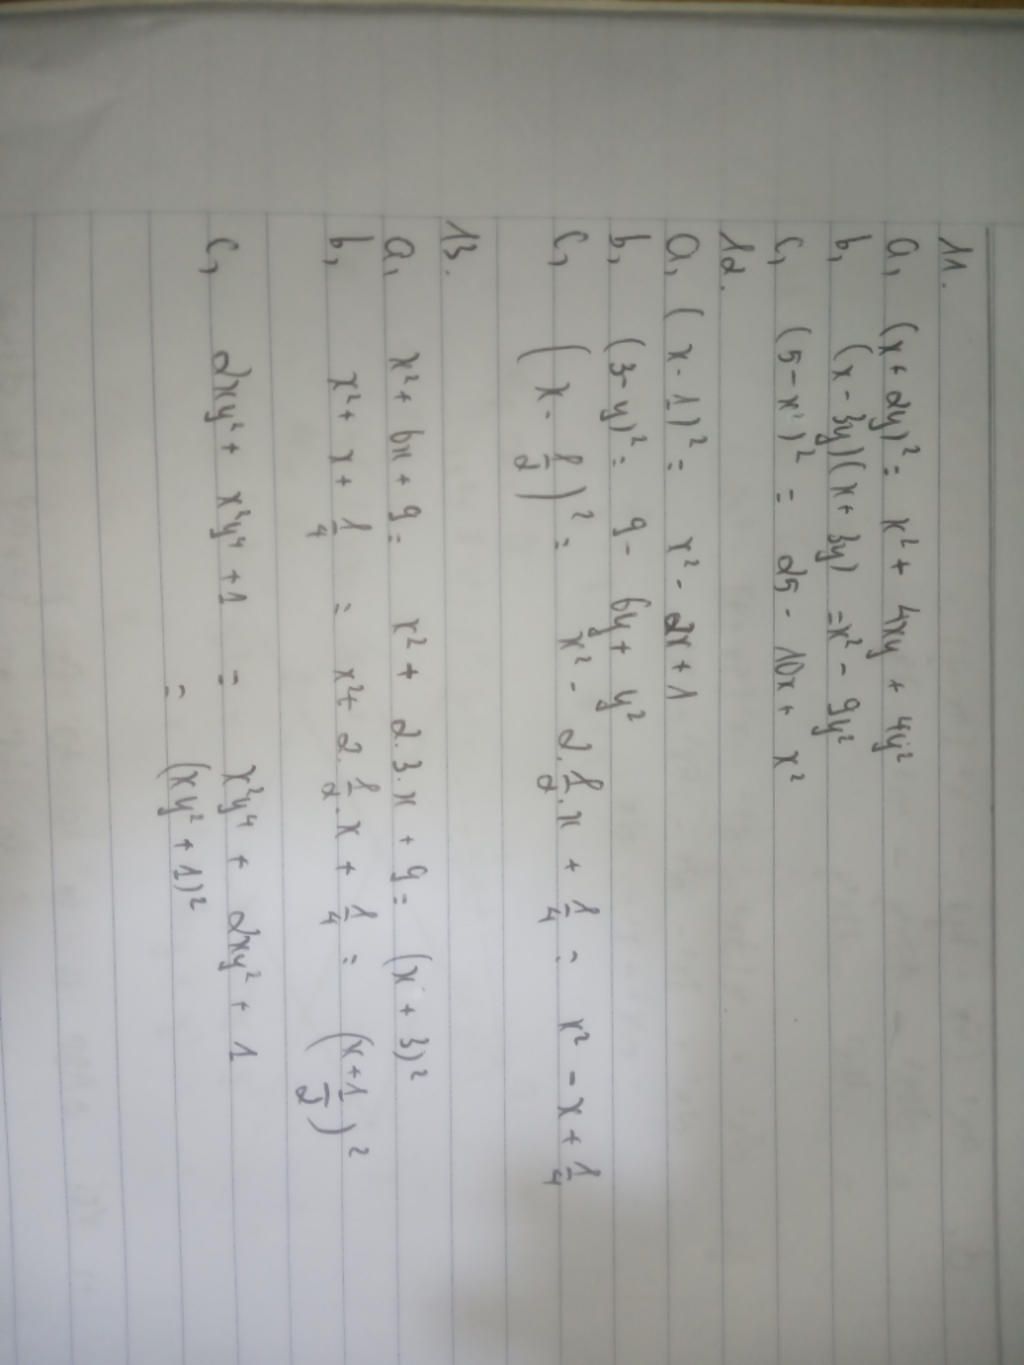 11.
a, (x + 2y)² = x² + 4xy + 4y²
b, (x - 3y)(x + 3y) = x² - 9y²
c, (5 - x)² = 25 - 10x + x²
12.
a, (x - 1)² = x² - 2x + 1
b, (3 - y)² = 9 - 6y + y²
c, (x - 1/2)² = x² - 2.1/2.x + 1/4 = x² - x + 1/4
13.
a, x² + 6x + 9 = x² + 2.3.x + 9 = (x + 3)²
b, x² + x + 1/4 = x² + 2.1/2.x + 1/4 = (x + 1/2)²
c, 2xy² + x²y⁴ + 1 = x²y⁴ + 2xy² + 1
= (xy² + 1)²